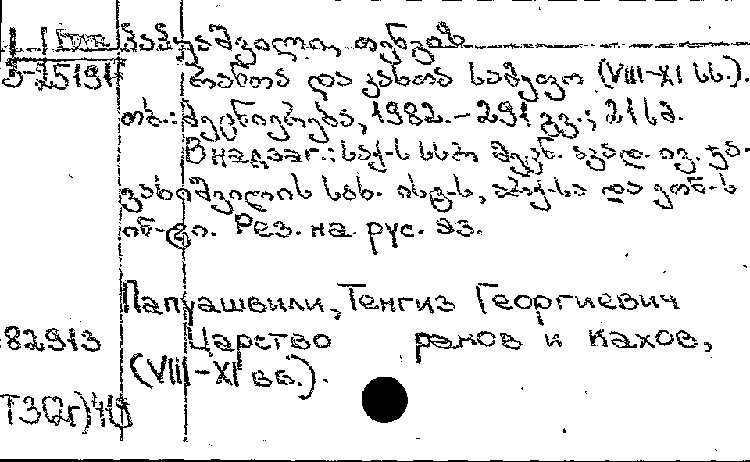 პაპუაშვილი, თენგიზ
Э-25191 რანთა და კახთა სამეფო (VIII-XI სს.).
თბ.: მეცნიერება, 1982.- 291 გვ.; 21 სმ.
В надзаг.: საქ-ს სსრ მეცნ. აკად. ივ. ჯა-
ვახიშვილის სახ. ისტ-ს, არქ-სა და ეთნ-ს
ინ-ტი. Рез. на рус. яз.
Папуашвили, Тенгиз Георгиевич
82913 Царство ранов и кахов,
(VIII-XI вв.).
Т3(2г)41